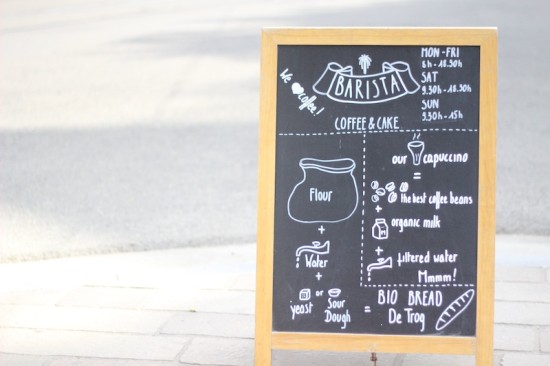 We ❤ coffee!
BARISTA
COFFEE & CAKE
MON - FRI
8h - 18.30h
SAT
9.30h - 18.30h
SUN
9.30h - 15h
Flour
+
Water
+
yeast or Sour Dough
= BIO BREAD
De Trog
our cappuccino
=
the best coffee beans
+
organic milk
M
+
filtered water
Mmmm!